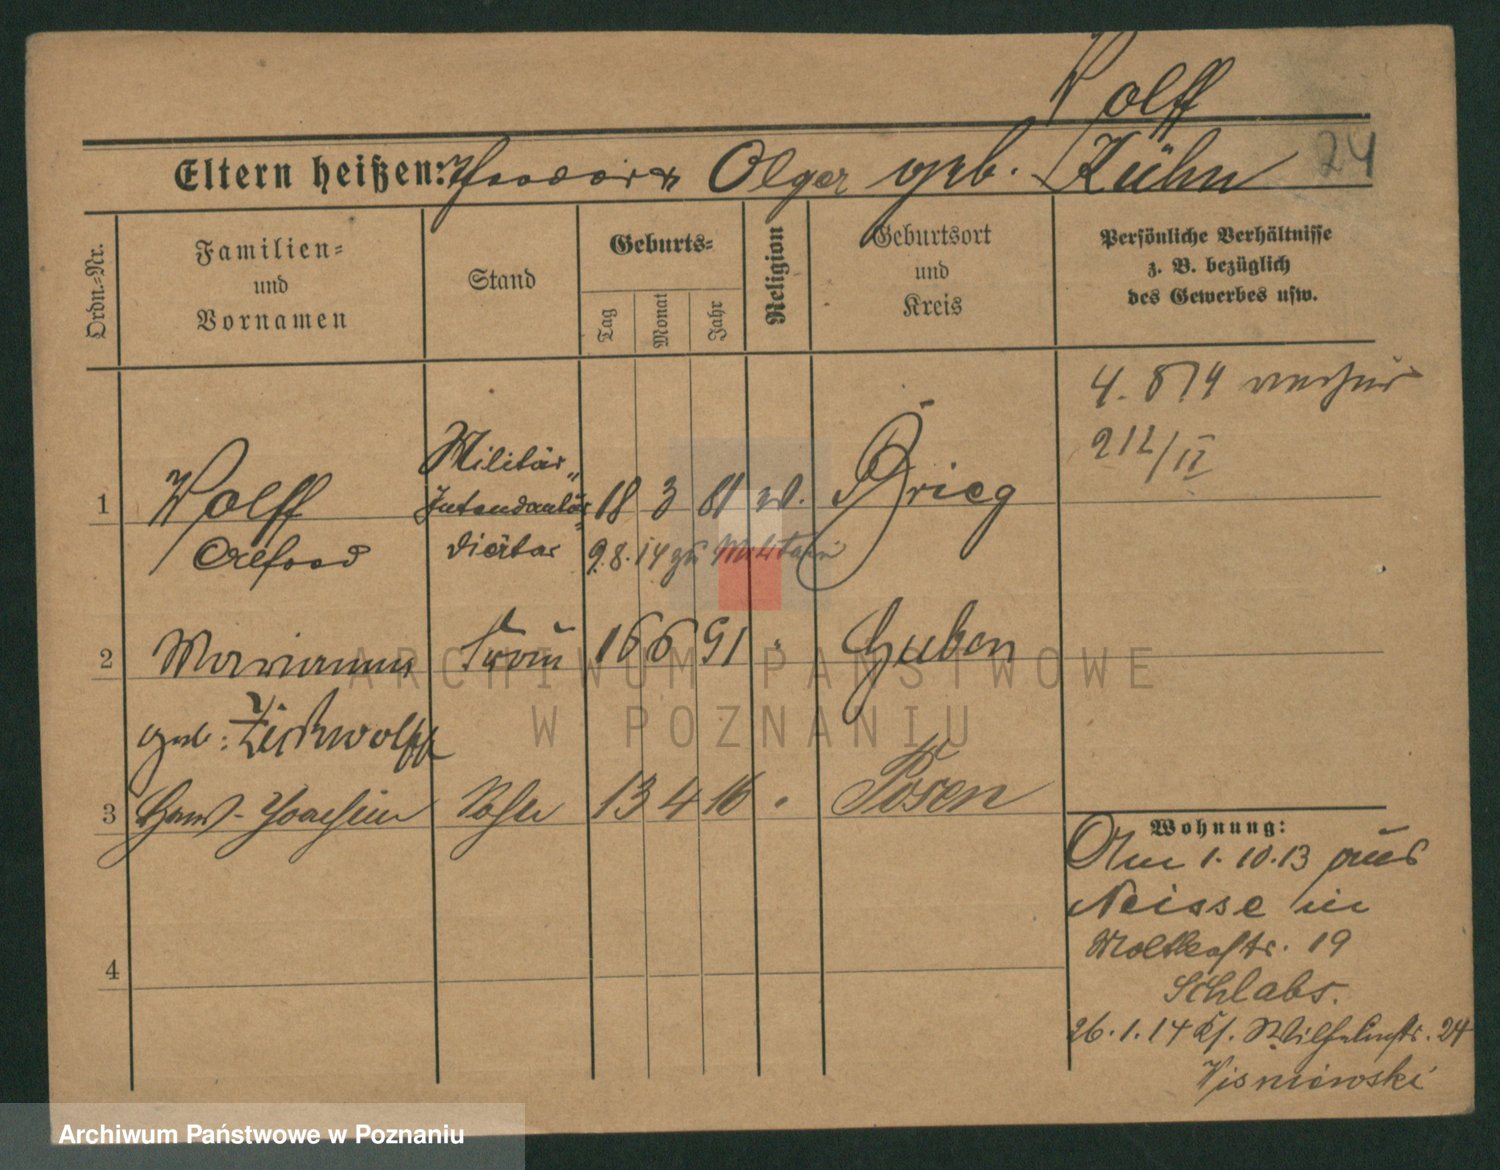 Wolff
Eltern heißen: Theodor u. Olga geb. Kühn 24
Ordn.-Nr.
Familien-
und
Vornamen
Stand
Geburts-
Tag
Monat
Jahr
Religion
Geburtsort
und
Kreis
Persönliche Verhältnisse
z. B. bezüglich
des Gewerbes usw.
4. 8 14
212/II
1 Wolff Militär- 18 3 81 Brieg
Intendantür
Alfred diätar 9.8.14 zu Militair
2 Marianne Frau 16 6 91 " Guben
geb:
3 Hans-Joachim Sohn 13 4 16 " Posen
4
Wohnung:
Am 1.10.13 aus
Neisse in
Moltkestr. 19
Schlabs.
26.1.14 Ks. Wilhelmstr. 24
Wisniewski
ARCHIWUM PAŃSTWOWE
W POZNANIU
Archiwum Państwowe w Poznaniu